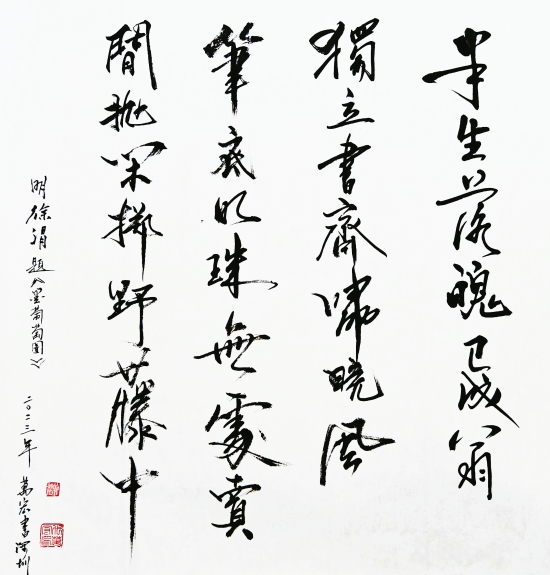 半生落魄已成翁
獨立書齋嘯晚風
筆底明珠無處賣
閒拋閒擲野藤中
明徐渭題《墨葡萄圖》
二〇二三年 萬宏書深圳